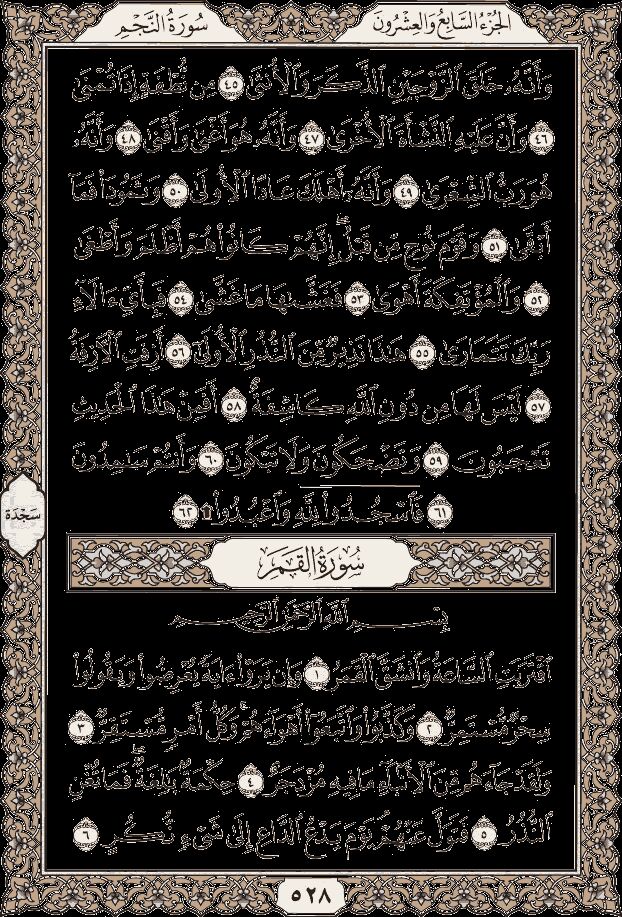 الجُزْءُ السَّابِعُ وَالعِشْرُونَ
سُورَةُ النَّجْمِ
وَأَنَّهُۥ خَلَقَ ٱلزَّوْجَيْنِ ٱلذَّكَرَ وَٱلْأُنثَىٰ ٤٥ مِن نُّطْفَةٍ إِذَا تُمْنَىٰ
٤٦ وَأَنَّ عَلَيْهِ ٱلنَّشْأَةَ ٱلْأُخْرَىٰ ٤٧ وَأَنَّهُۥ هُوَ أَغْنَىٰ وَأَقْنَىٰ ٤٨ وَأَنَّهُۥ
هُوَ رَبُّ ٱلشِّعْرَىٰ ٤٩ وَأَنَّهُۥٓ أَهْلَكَ عَادًا ٱلْأُولَىٰ ٥٠ وَثَمُودَا۟ فَمَآ
أَبْقَىٰ ٥١ وَقَوْمَ نُوحٍ مِّن قَبْلُ ۖ إِنَّهُمْ كَانُوا۟ هُمْ أَظْلَمَ وَأَطْغَىٰ
٥٢ وَٱلْمُؤْتَفِكَةَ أَهْوَىٰ ٥٣ فَغَشَّىٰهَا مَا غَشَّىٰ ٥٤ فَبِأَىِّ ءَالَآءِ
رَبِّكَ تَتَمَارَىٰ ٥٥ هَٰذَا نَذِيرٌ مِّنَ ٱلنُّذُرِ ٱلْأُولَىٰٓ ٥٦ أَزِفَتِ ٱلْءَازِفَةُ
٥٧ لَيْسَ لَهَا مِن دُونِ ٱللَّهِ كَاشِفَةٌ ٥٨ أَفَمِنْ هَٰذَا ٱلْحَدِيثِ
تَعْجَبُونَ ٥٩ وَتَضْحَكُونَ وَلَا تَبْكُونَ ٦٠ وَأَنتُمْ سَٰمِدُونَ
٦١ فَٱسْجُدُوا۟ لِلَّهِ وَٱعْبُدُوا۟ ۩ ٦٢
سَجْدَة
سُورَةُ القَمَرِ
بِسْمِ ٱللَّهِ ٱلرَّحْمَٰنِ ٱلرَّحِيمِ
ٱقْتَرَبَتِ ٱلسَّاعَةُ وَٱنشَقَّ ٱلْقَمَرُ ١ وَإِن يَرَوْا۟ ءَايَةً يُعْرِضُوا۟ وَيَقُولُوا۟
سِحْرٌ مُّسْتَمِرٌّ ٢ وَكَذَّبُوا۟ وَٱتَّبَعُوٓا۟ أَهْوَآءَهُمْ ۚ وَكُلُّ أَمْرٍ مُّسْتَقِرٌّ ٣
وَلَقَدْ جَآءَهُم مِّنَ ٱلْأَنۢبَآءِ مَا فِيهِ مُزْدَجَرٌ ٤ حِكْمَةٌۢ بَٰلِغَةٌ ۖ فَمَا تُغْنِ
ٱلنُّذُرُ ٥ فَتَوَلَّ عَنْهُمْ ۘ يَوْمَ يَدْعُ ٱلدَّاعِ إِلَىٰ شَىْءٍ نُّكُرٍ ٦
٥٢٨